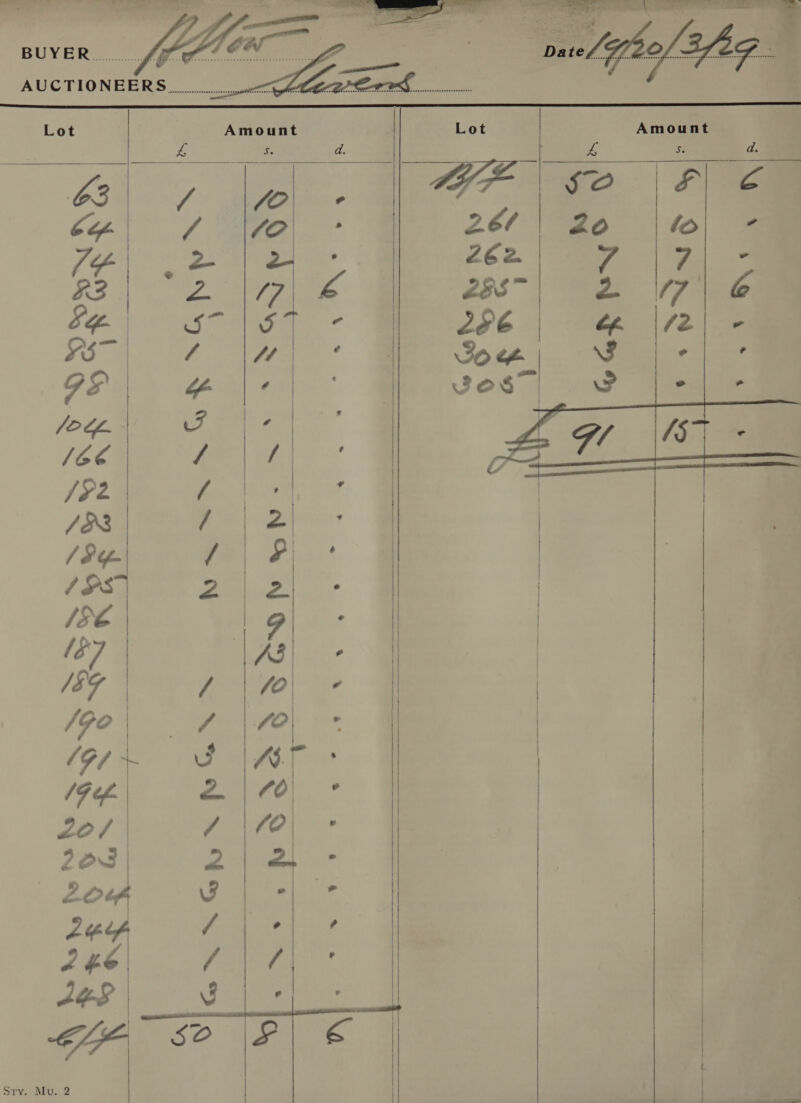 BUYER
Date 19/20/3/29
AUCTIONEERS Stevens
Lot Amount
£ s. d.
63 1 10 -
64 1 10 -
74 2 2 -
83 2 17 6
84 5 5 -
85 1 11 -
98 4 - -
104 3 - -
166 1 1 -
182 1 - -
183 1 2 -
184 1 8 -
185 2 2 -
186 9 -
187 13 -
189 1 10 -
190 1 10 -
191 3 15 -
194 2 10 -
201 1 10 -
203 2 2 -
204 3 - -
244 1 - -
246 1 1 -
248 3 - -
C/F 50 8 6
Lot Amount
£ s. d.
B/F 50 8 6
261 20 10 -
262 7 7 -
285 2 17 6
286 4 12 -
304 3 - -
305 3 - -
£ 91 15 -
Srv. Mu. 2